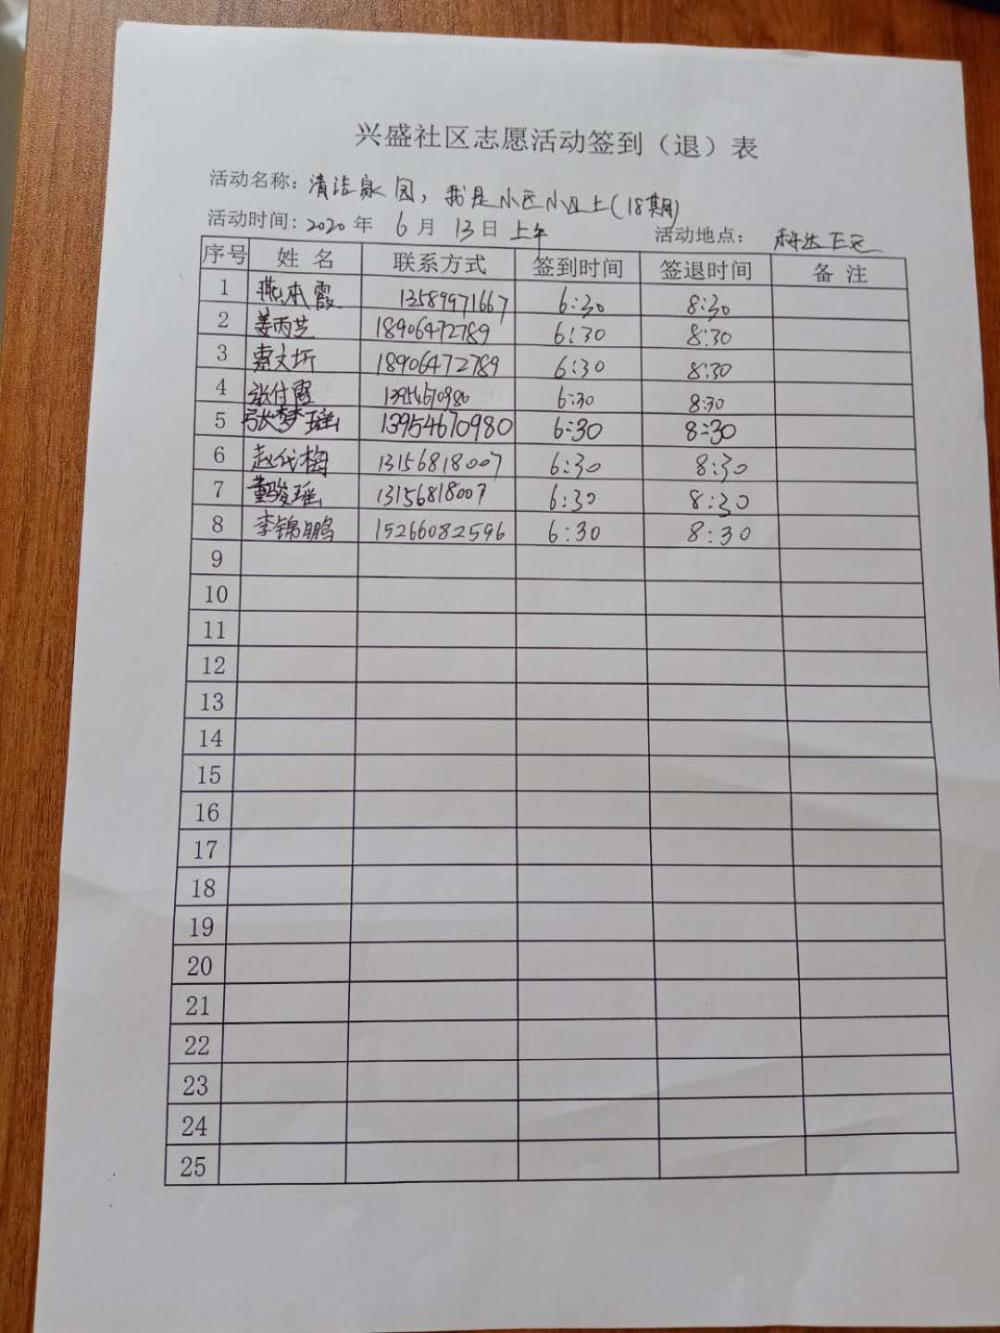 兴盛社区志愿活动签到（退）表
活动名称：清洁家园，我是小区小卫士(18期)
活动时间：2020年 6月 13日 上午 活动地点：
序号 姓名 联系方式 签到时间 签退时间 备注
1 燕本霞 13589971667 6:30 8:30
2 姜丙芝 18906472789 6:30 8:30
3 惠文圻 18906472789 6:30 8:30
4 张付霞 13954670980 6:30 8:30
5 张梦瑶 13954670980 6:30 8:30
6 赵代梅 13156818007 6:30 8:30
7 董骏瑶 13156818007 6:30 8:30
8 李锦鹏 15266082596 6:30 8:30
9
10
11
12
13
14
15
16
17
18
19
20
21
22
23
24
25